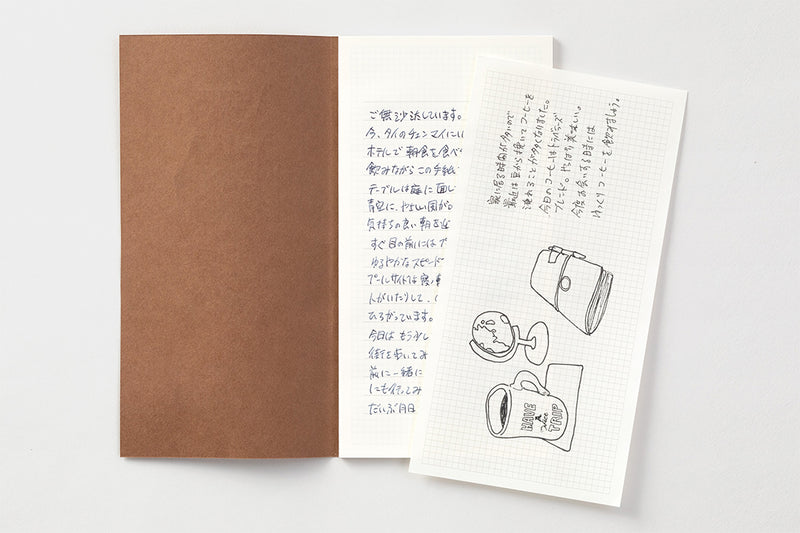 ご無沙汰しています。
今、タイのチェンマイにい
ホテルで朝食を食べ
飲みながらこの手紙
テーブルは庭に面し
青空に、やさしい風が。
気持ちの良い朝を迎
すぐ目の前にはプ
ゆるやかなスピード
プールサイドでは寝
んがいたりして、
ひろがっています。
今日はもう少し
街を歩いてみ
前に一緒に
にも行ってみ
だいぶ月日
家に居る時間が多いので
最近は豆から挽いてコーヒーを
淹れることが多くなりました。
今日のコーヒーはトラベラーズ
ブレンド。やっぱり美味しい。
今度お会いする時には
ゆっくりコーヒーを飲みましょう。
HAVE
A
Nice
TRIP